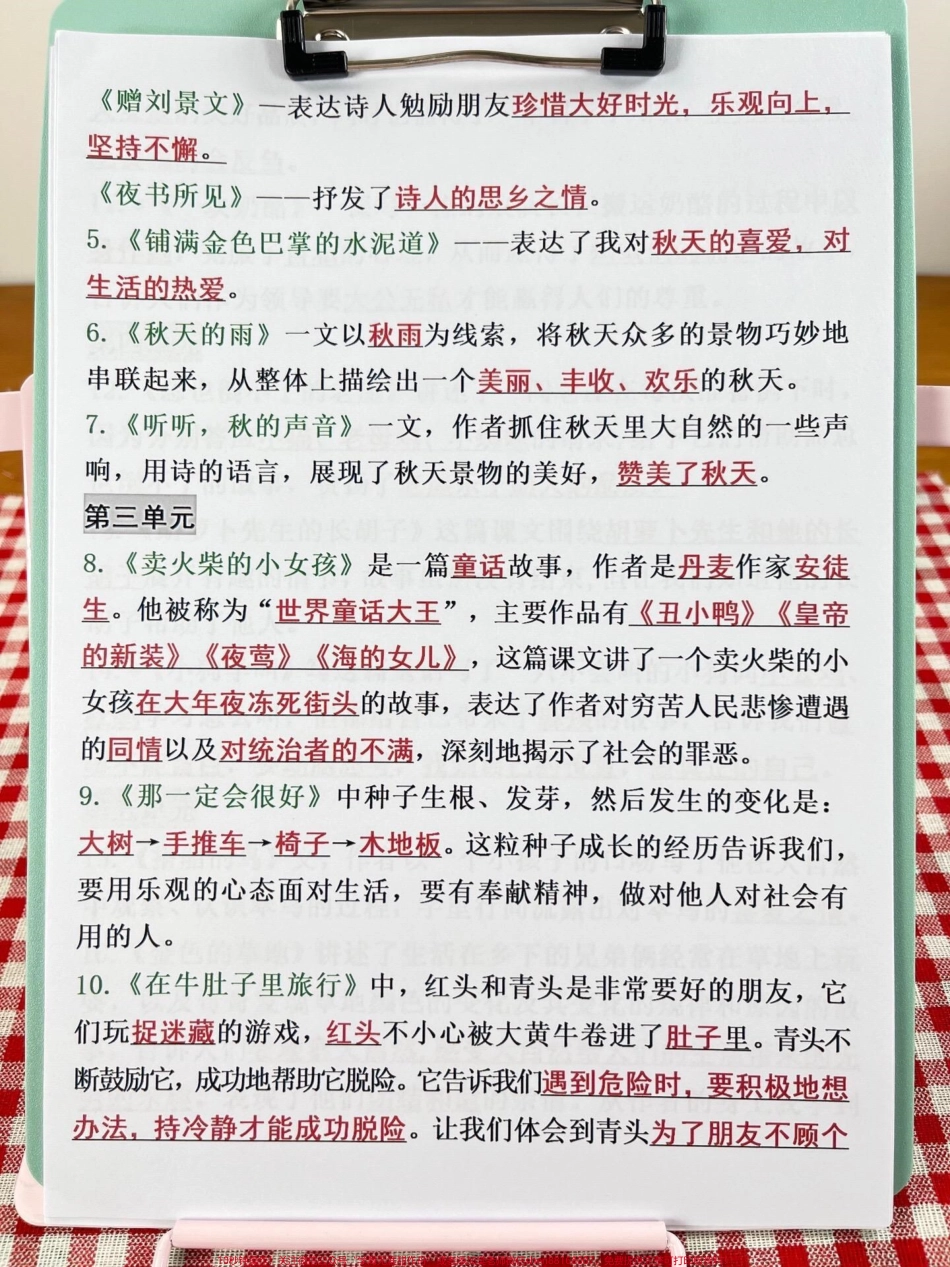 《赠刘景文》—表达诗人勉励朋友珍惜大好时光，乐观向上，
坚持不懈。
《夜书所见》——抒发了诗人的思乡之情。
5.《铺满金色巴掌的水泥道》——表达了我对秋天的喜爱，对
生活的热爱。
6.《秋天的雨》一文以秋雨为线索，将秋天众多的景物巧妙地
串联起来，从整体上描绘出一个美丽、丰收、欢乐的秋天。
7.《听听，秋的声音》一文，作者抓住秋天里大自然的一些声
响，用诗的语言，展现了秋天景物的美好，赞美了秋天。
第三单元
8.《卖火柴的小女孩》是一篇童话故事，作者是丹麦作家安徒
生。他被称为“世界童话大王”，主要作品有《丑小鸭》《皇帝
的新装》《夜莺》《海的女儿》，这篇课文讲了一个卖火柴的小
女孩在大年夜冻死街头的故事，表达了作者对穷苦人民悲惨遭遇
的同情以及对统治者的不满，深刻地揭示了社会的罪恶。
9.《那一定会很好》中种子生根、发芽，然后发生的变化是：
大树→手推车→椅子→木地板。这粒种子成长的经历告诉我们，
要用乐观的心态面对生活，要有奉献精神，做对他人对社会有
用的人。
10.《在牛肚子里旅行》中，红头和青头是非常要好的朋友，它
们玩捉迷藏的游戏，红头不小心被大黄牛卷进了肚子里。青头不
断鼓励它，成功地帮助它脱险。它告诉我们遇到危险时，要积极地想
办法，持冷静才能成功脱险。让我们体会到青头为了朋友不顾个